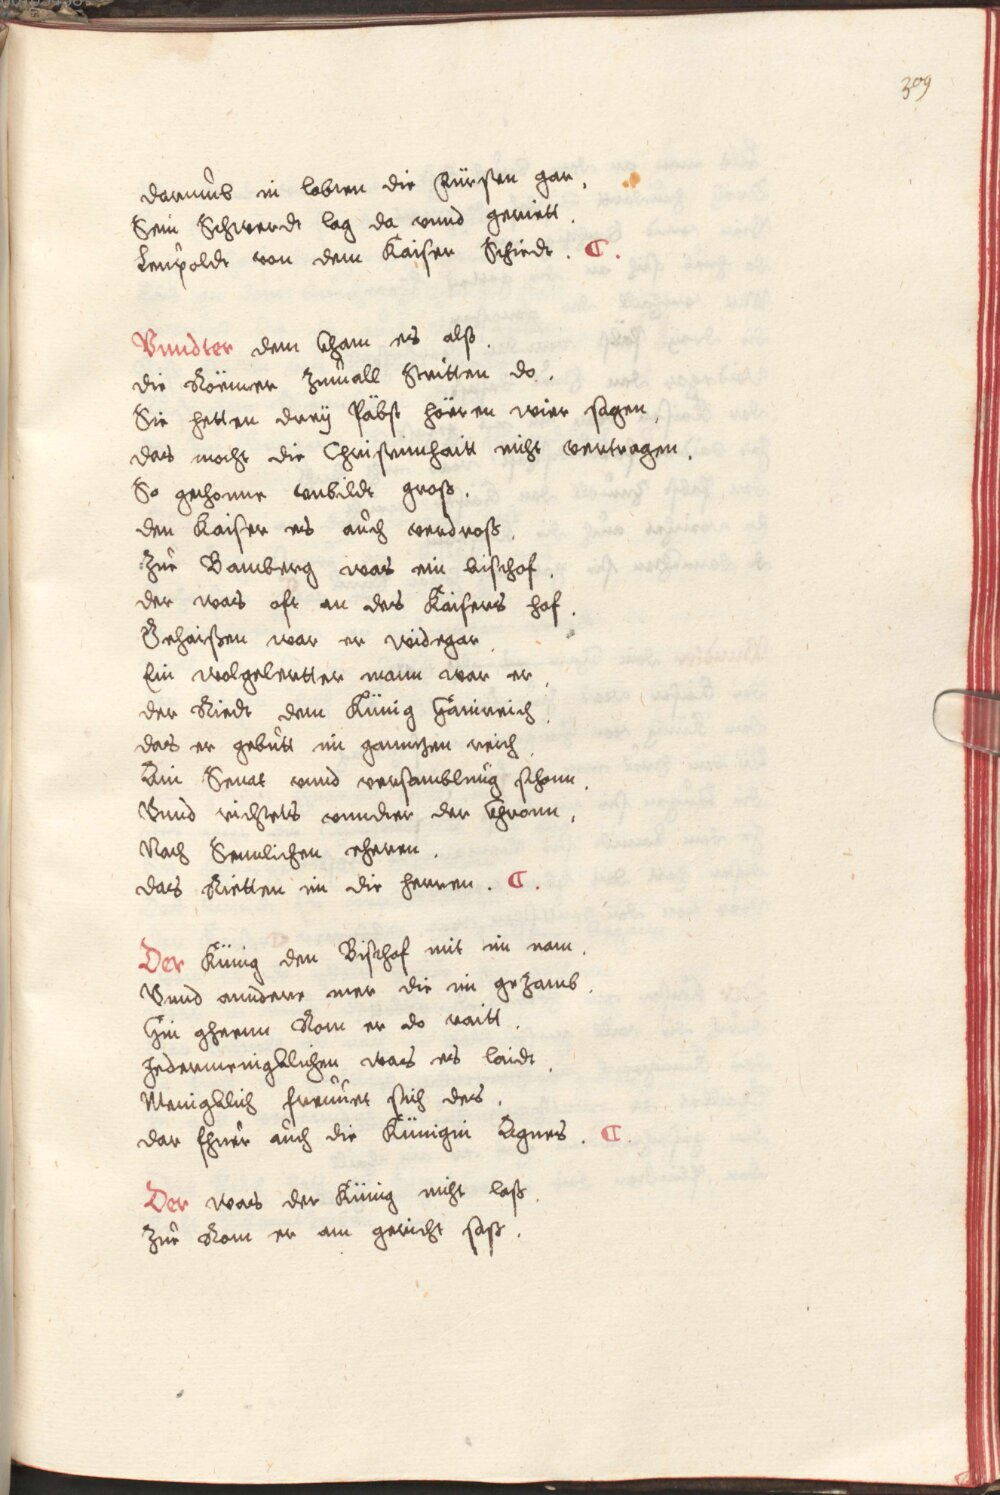 309
darumb in lobten die Fürsten gar,
Sein Schwerdt lag da vnnd geriett.
Leupoldt von dem Kaiser Schiedt. ¶.
Vnndter dem kham es alß.
die Röemer Zumall Stritten do.
Sie hetten dreÿ Päbst hören wier sagen,
das mocht die Christennhaitt nicht vertragen.
So gethonne vnbildt groß.
den Kaiser es auch verdroß.
Zue Bamberg was ein bischof.
der was oft an des Kaisers hof.
Gehaißen war er widegar.
Ein wolgelertter mann war er,
der Riedt dem Künig Hainreich,
das er gebütt im ganntzen reich,
Ain Senat vnnd versamblung schonn,
Vnnd richtets vnndter der Chronn,
Nach Senndlichen eheren.
das Rietten im die herren. ¶.
Der Künig den Bischof mit im nam.
Vnnd anndere mer die im gezamb.
Hin ghenn Rom er do raitt.
Jedermenigklichen was es laidt.
Menigklich freuet sich des.
dar fhuer auch die Künigin Agnes. ¶.
Der was der Künig nicht laß.
Zue Rom er am gericht saß.